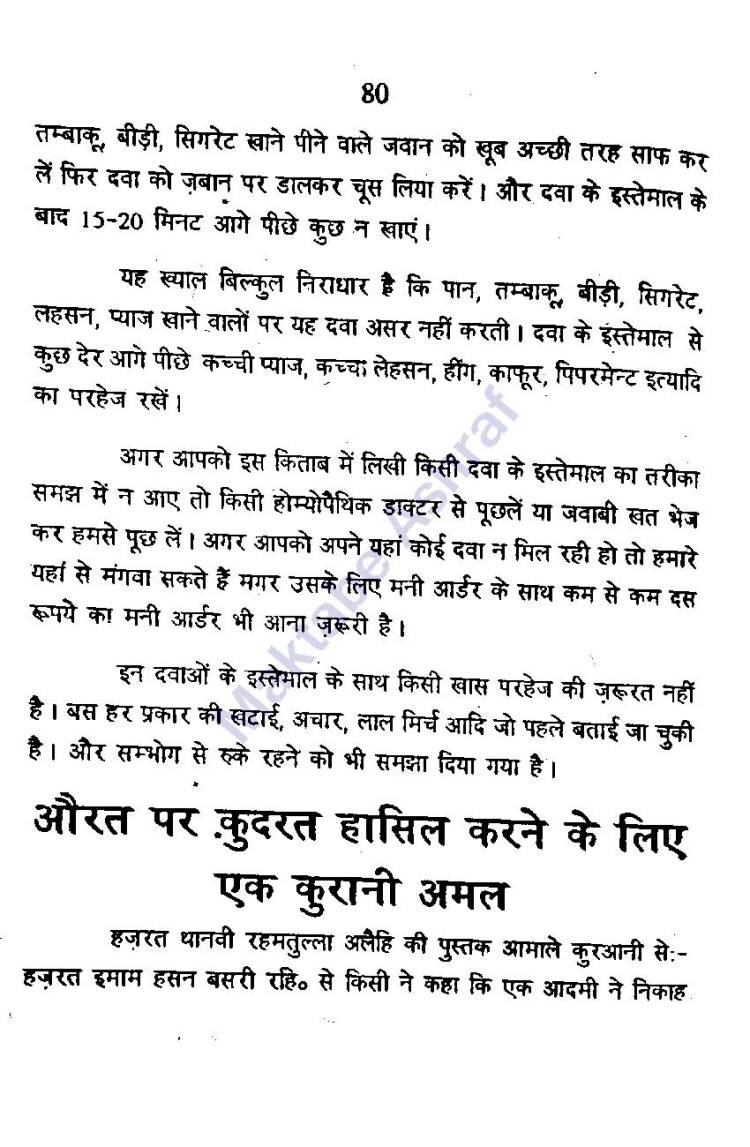 80
तम्बाकू, बीड़ी, सिगरेट खाने पीने वाले जवान को खूब अच्छी तरह साफ कर
लें फिर दवा को ज़बान पर डालकर चूस लिया करें। और दवा के इस्तेमाल के
बाद 15-20 मिनट आगे पीछे कुछ न खाएं।
यह ख्याल बिल्कुल निराधार है कि पान, तम्बाकू, बीड़ी, सिगरेट,
लहसन, प्याज खाने वालों पर यह दवा असर नहीं करती। दवा के इस्तेमाल से
कुछ देर आगे पीछे कच्ची प्याज, कच्चा लेहसन, हींग, काफूर, पिपरमेन्ट इत्यादि
का परहेज रखें।
अगर आपको इस किताब में लिखी किसी दवा के इस्तेमाल का तरीका
समझ में न आए तो किसी होम्योपैथिक डाक्टर से पूछलें या जवाबी खत भेज
कर हमसे पूछ लें। अगर आपको अपने यहां कोई दवा न मिल रही हो तो हमारे
यहां से मंगवा सकते हैं मगर उसके लिए मनी आर्डर के साथ कम से कम दस
रूपये का मनी आर्डर भी आना ज़रूरी है।
इन दवाओं के इस्तेमाल के साथ किसी खास परहेज की ज़रूरत नहीं
है। बस हर प्रकार की खटाई, अचार, लाल मिर्च आदि जो पहले बताई जा चुकी
है। और सम्भोग से रुके रहने को भी समझा दिया गया है।
औरत पर कुदरत हासिल करने के लिए
एक कुरानी अमल
हज़रत थानवी रहमतुल्ला अलैहि की पुस्तक आमाले कुरआनी से:-
हज़रत इमाम हसन बसरी रहि० से किसी ने कहा कि एक आदमी ने निकाह
Maktabe Ashraf